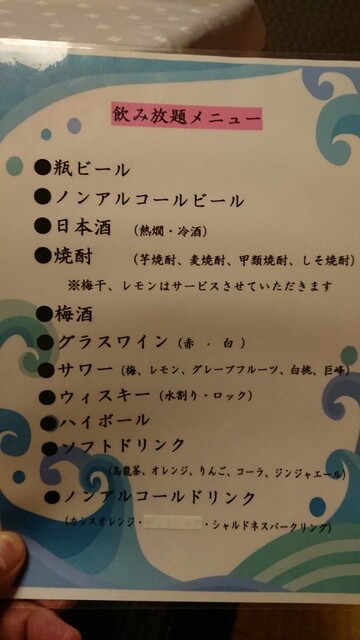 飲み放題メニュー
●瓶ビール
●ノンアルコールビール
●日本酒 (熱燗・冷酒)
●焼酎 (芋焼酎、麦焼酎、甲類焼酎、しそ焼酎)
※梅干、レモンはサービスさせていただきます
●梅酒
●グラスワイン (赤 ・ 白)
●サワー (梅、レモン、グレープフルーツ、白桃、巨峰)
●ウィスキー (水割り・ロック)
●ハイボール
●ソフトドリンク
(烏龍茶、オレンジ、りんご、コーラ、ジンジャエール)
●ノンアルコールドリンク
(カシスオレンジ・ ・シャルドネスパークリング)